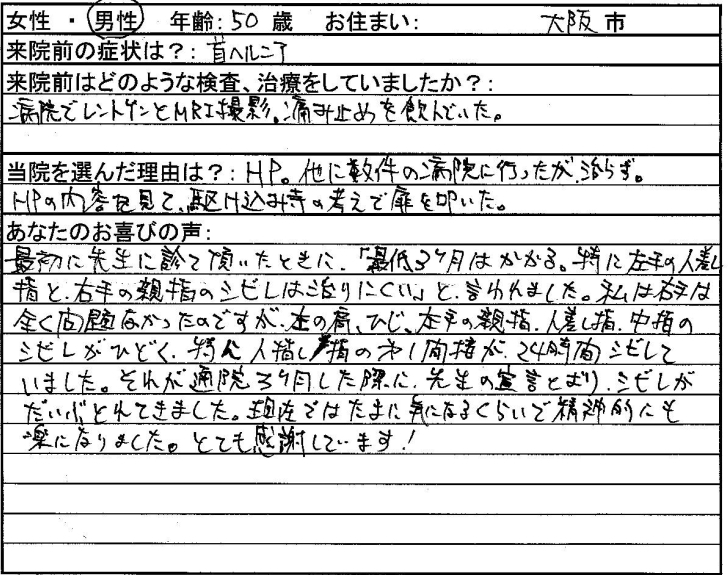 女性 ・ 男性 年齢: 50 歳 お住まい: 大阪 市
来院前の症状は?: 首ヘルニア
来院前はどのような検査、治療をしていましたか?:
病院でレントゲンとMRI撮影。痛み止めを飲んでいた。
当院を選んだ理由は?: HP。他に数件の病院に行ったが、治らず。
HPの内容を見て、駆け込み寺の考えで扉を叩いた。
あなたのお喜びの声:
最初に先生に診て頂いたときに、「最低3ヶ月はかかる。特に左手の人差し
指と、右手の親指のシビレは治りにくい」と、言われました。私は右手は
全く問題なかったのですが、左の肩、ひじ、左手の親指、人差し指、中指の
シビレがひどく、特に人指し指の第1間接が、24時間シビレして
いました。それが通院3ヶ月した際に、先生の宣言とおり、シビレが
だいぶとれてきました。現在ではたまに気になるくらいで精神的にも
楽になりました。とても感謝しています!